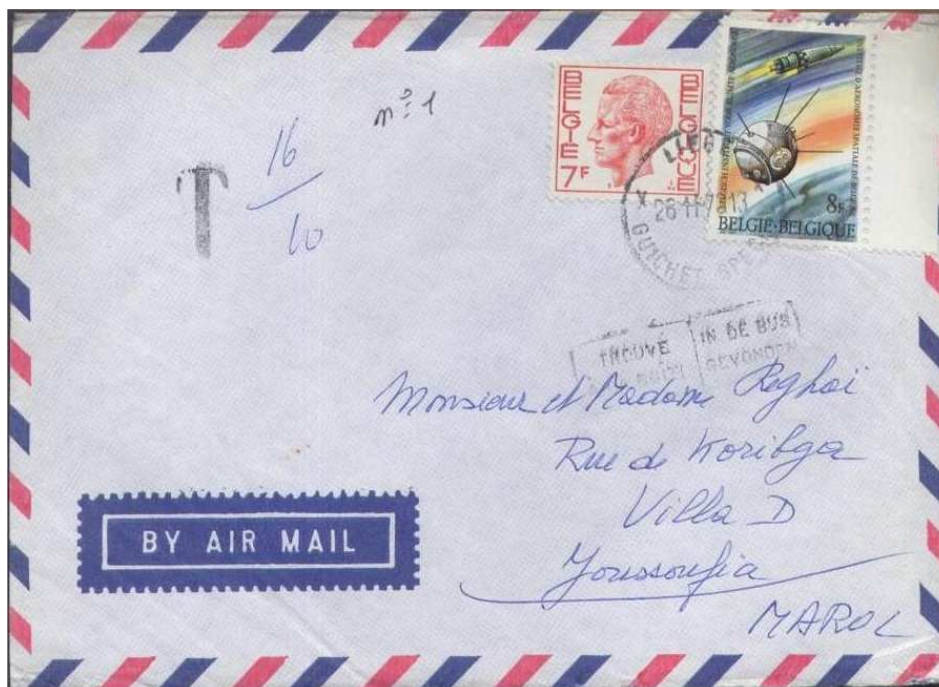 n°1
T 16
10
BELGIË BELGIQUE
7F
8F
BELGIË-BELGIQUE
GUICHET
TROUVE IN DE BUS
GEVONDEN
Monsieur et Madame Reghaï
Rue de Koribga
Villa D
Youssoufia
MAROC
BY AIR MAIL